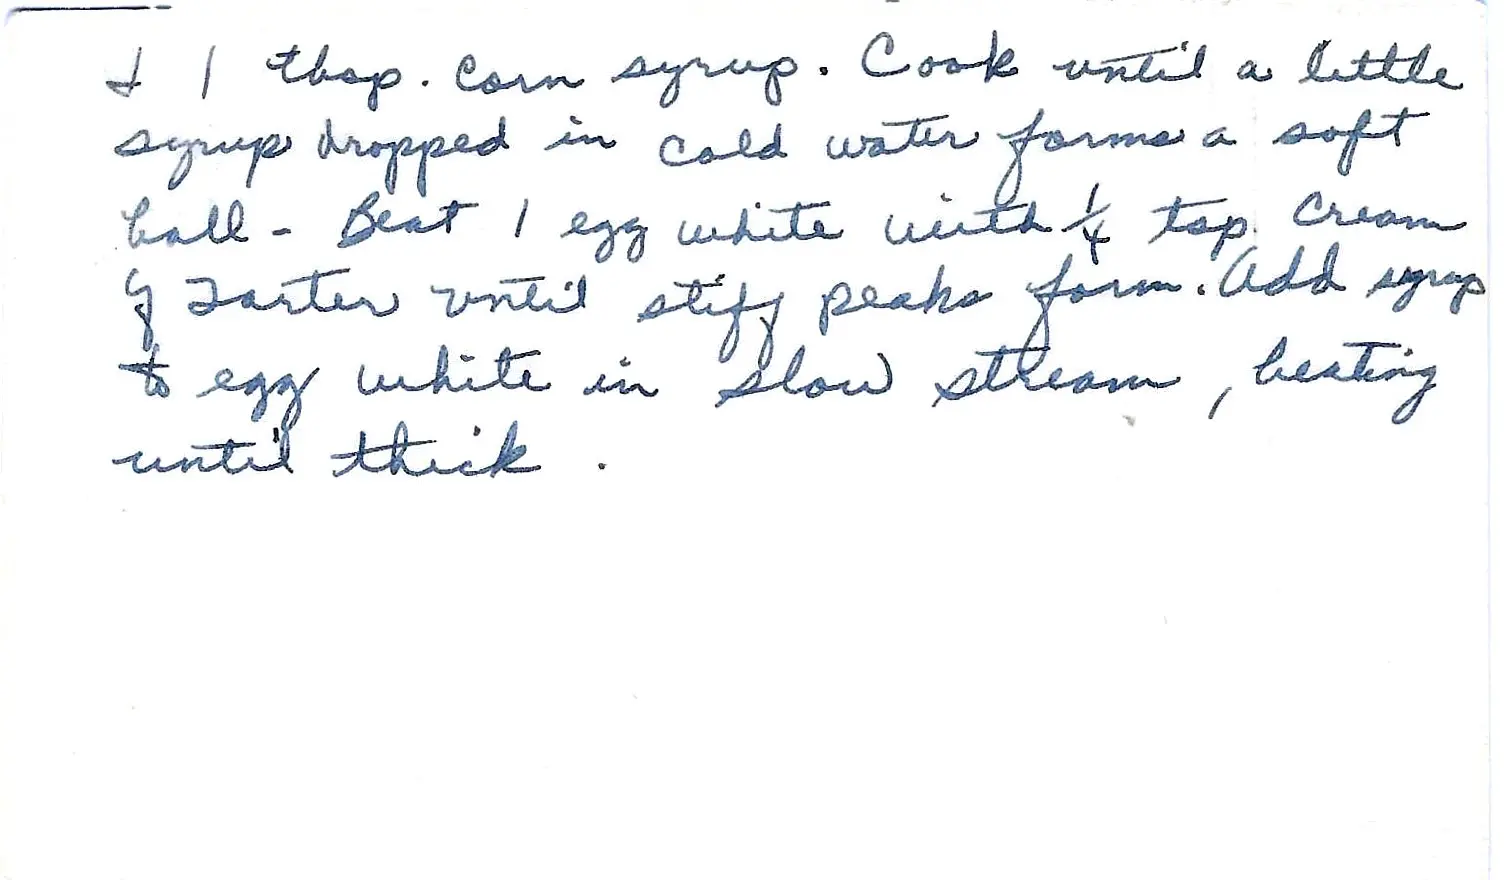 & 1 tbsp. Corn syrup. Cook until a little
syrup dropped in cold water forms a soft
ball - Beat 1 egg white with 1/4 tsp. Cream
of Tarter until stiff peaks form. Add syrup
to egg white in slow stream, beating
until thick.